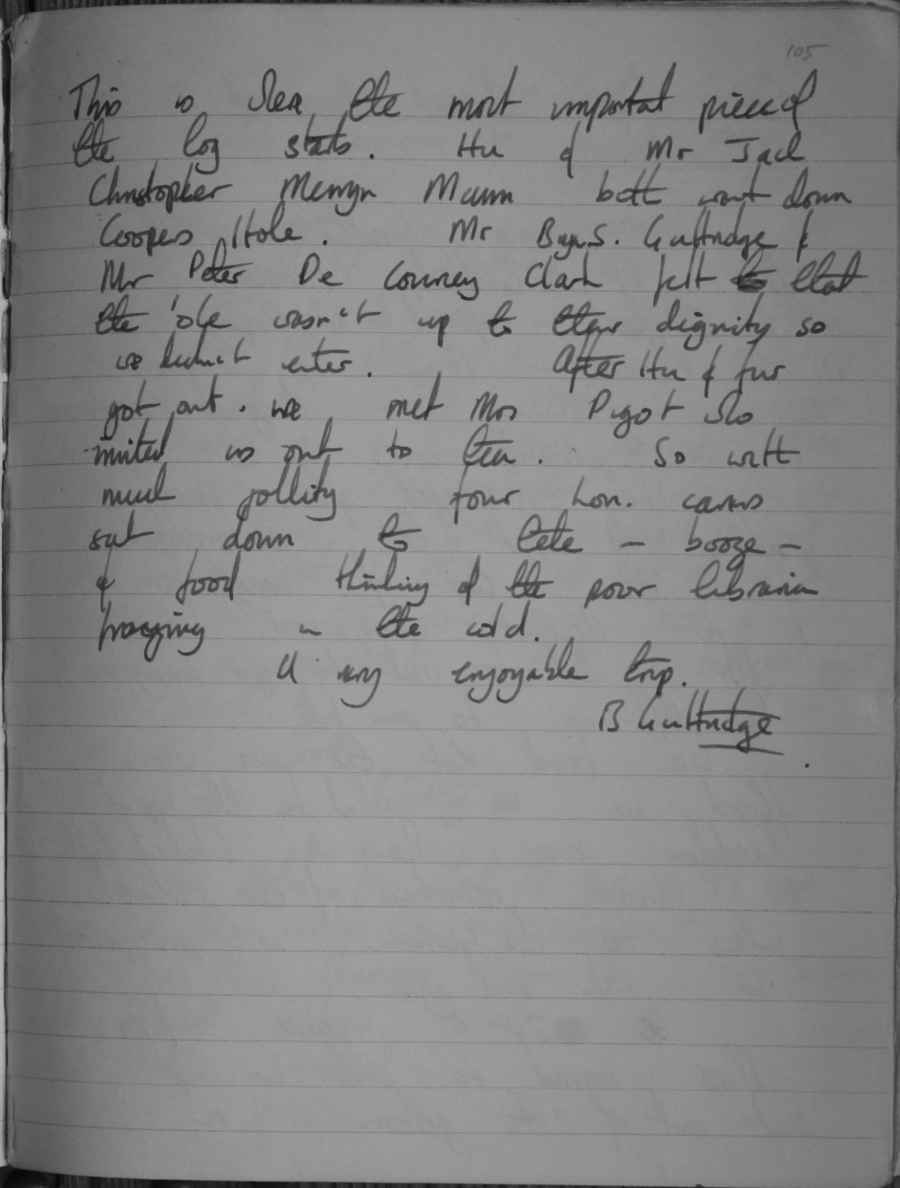 105
This is then the most important piece of
the log starts. Hu & Mr Jack
Christopher Merryn Mann both went down
Coopers Hole. Mr Bryn S. Guttridge &
Mr Peter De Courcey Clark felt that
the 'ole wasn't up to their dignity so
we didn't enter. After Hu &
got out. we met Mrs Pigot who
invited us out to tea. So with
much jollity four hon. cavers
sat down to - booze -
& food thinking of the poor librarian
in the cold.
A very enjoyable trip.
B Guttridge